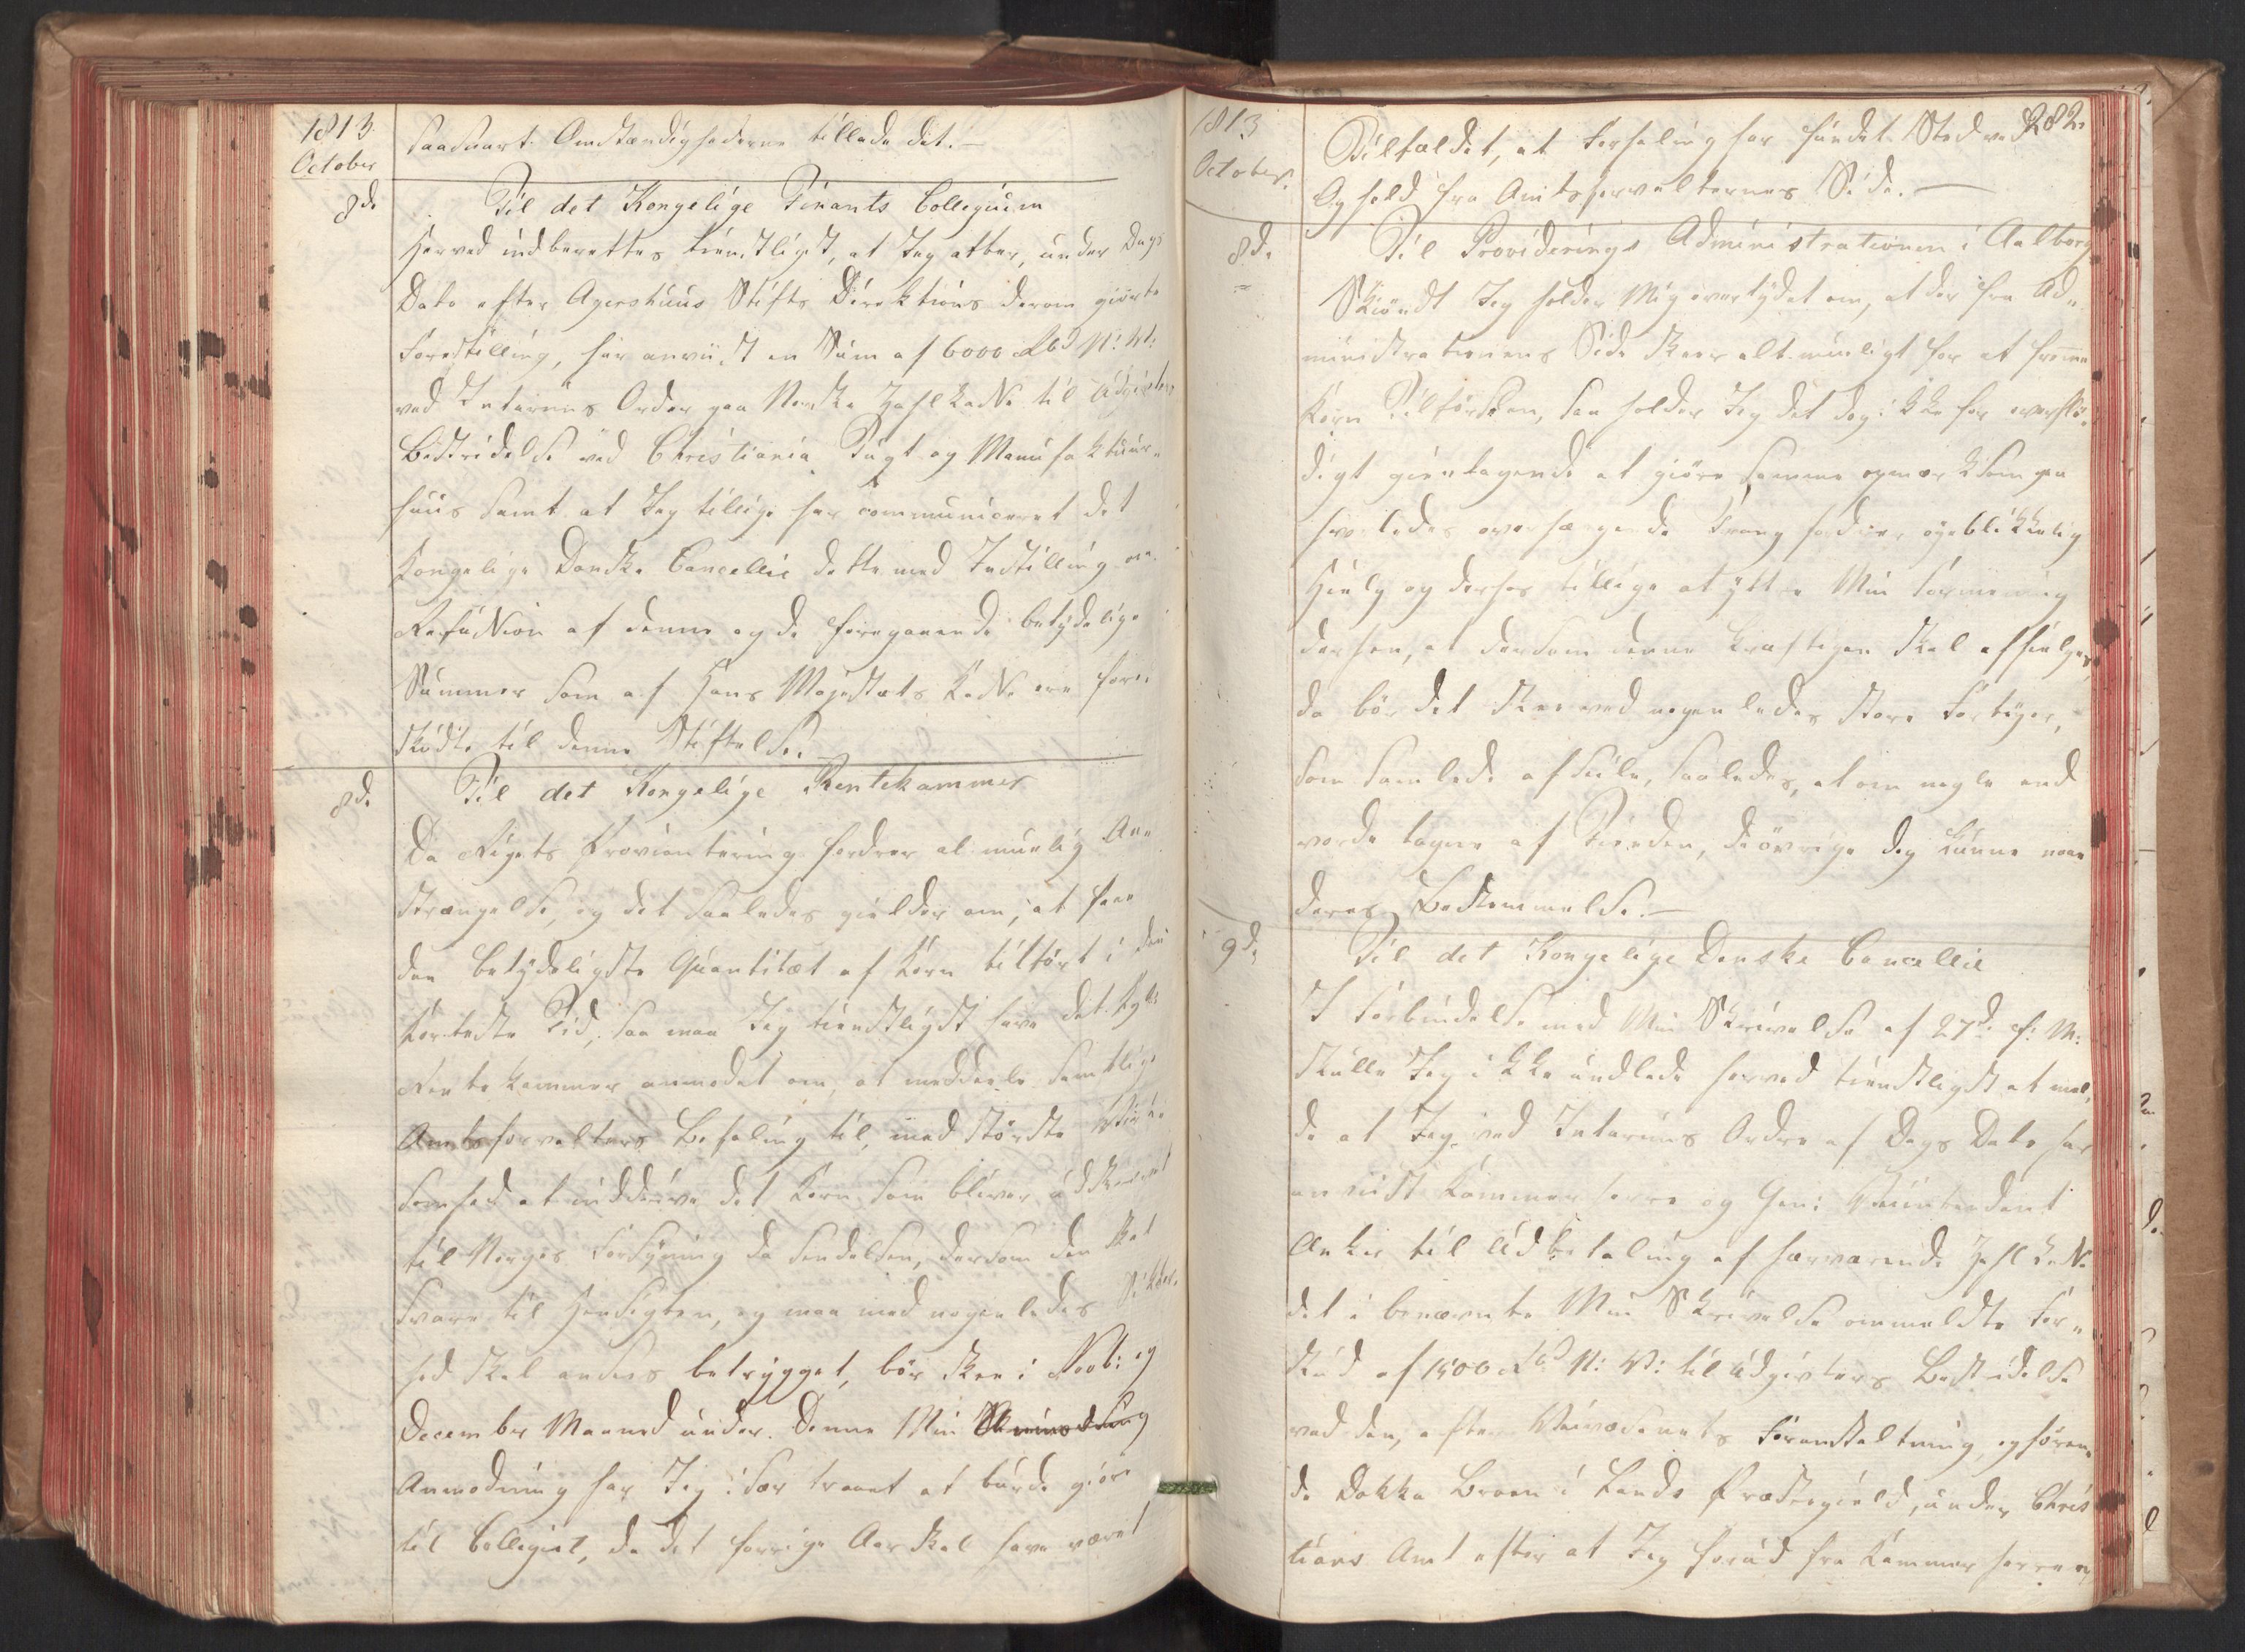 1813
October
saasnart Omstændighederne tillade det.—
8d.
Til det Kongelige Finants Collegium
Herved indberettes tienstligst, at Jeg atter, under Dags
Dato efter Agershuus Stifts Direktions derom giorte
Forestilling, har anviist en Sum af 6000 Rbd N: V:
ved Interims Ordre paa Norske Zahlkasse til Udgivters
Bestridelse ved Christiania Tugt og Manufaktuur-
huus samt at Jeg tillige har communiceret det
Kongelige Danske Cancellie dette med Indstilling om
Refusion af denne og de foregaaende betydelige
Summer som af Hans Majestæts Kasse ere for-
skudte til denne Stiftelse.
8d.
Til det Kongelige Rentekammer
Da Rigets Proviantering fordrer al muelig An-
strængelse, og det saaledes gielder om, at faae
den betydeligste Quantitæt af Korn tilført i den
korteste Tid, saa maa Jeg tienstligst have det Kgl:
Rentekammer anmodet om, at meddeele samtlige
Amtsforvaltere Befaling til, med størdste Virk-
somhed at inddrive det Korn som bliver udskrevet
til Norges Forsyning da Sendelsen, dersom den skal
svare til Hensigten, og man med nogenledes Sikker-
hed skal ansees betrygget, bør skee i Novbr: og
December Maaned under. Denne Min
Anmodning har Jeg især troet at burde giøre
til Collegiet, da det forrige Aar skal have været
1813
October.
282.
Tilfældet, at Forhaling har fundet Sted ved
Ophold fra Amtsforvalternes Side.—
8d.
Til Provideerings Administrationen i Aalborg
Skiøndt Jeg holder Mig overtydet om, at der fra Ad-
ministrationens Side skeer alt mueligt for at fremme
Korn Tilførselen, saa holder Jeg det dog ikke for overflø-
digt gientagende at giøre samme opmærksom paa
hvorledes overhængende Trang fordrer øyeblikkelig
Hielp og derhos tillige at yttre Min Formening
derhen, at dersom denne kraftigen skal afhielpes,
da bør det skee ved nogenledes store Fartøyer,
som samlede afseile, saaledes, at om nogle end
vorde tagne af Fienden, de øvrige dog kunne naae
deres Bestemmelse.—
9d.
Til det Kongelige Danske Cancellie
I Forbindelse med Min Skrivelse af 27d. f: M:
skulle Jeg ikke undlade herved tienstligst at mel-
de at Jeg ved Interims Ordre af Dags Dato har
anviist Kammerherre og Gen: Veiintendant
Anker til Udbetaling af herværende Zahlkasse
det i benævnte Min Skrivelse ommeldte For-
skud af 1500 Rbd N: V: til Udgivters Bestridelse
ved den, efter Veivæsenets Foranstaltning, opføren-
de Dokka Broen i Lands Præstegield, under Chris
tians Amt efter at Jeg forud fra Kammerherren